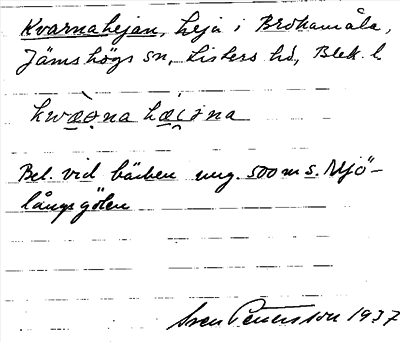 Kvarnahejan, heja i Brokamåla,
Jämshögs sn, Listers hd, Blek. l
kwæ̀ǝna hæi̯ǝna
Bel. vid bäcken ung. 500 m s. Mjö-
långsgölen
Sven Petersson 1937